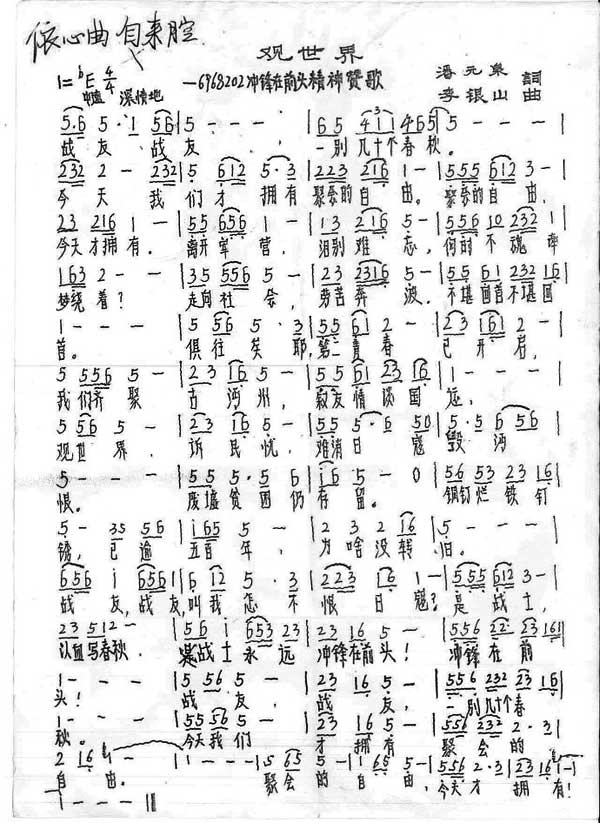 依心曲自来腔
观世界
1=ᵇE 4/4 —6968202冲锋在前头精神赞歌 潘元 詞
深情地 李银山 曲
5·6 5 · 1 56 | 5 - - - | 65 431 465 | 5 - - -
战友，战友， 一别几十个春秋。
232 2 - 232 | 5 · 612 5·3 | 223 216 1 - | 555 612 3 -
今天我们才拥有 聚会的自由。聚会的自由，
23 216 1 - | 55 656 1 - | 13 216 5 - | 556 10 232 1
今天才拥有。 离开军营， 泪别难忘， 何时不魂牵
163 2 - - | 35 556 5 - | 23 2316 5 - | 55 61 232 16
梦绕着？ 走向社会， 劳苦奔波。不堪回首不堪回
1 - - - | 5 56 5 · 3 | 55 61 2 - | 23 161 2 -
首。 俱往矣耶，第二青春 已开启，
5 556 5 - | 23 16 5 - | 55 61 23 16 | 1 - - -
我们齐聚 古沔州， 叙友情谈国运，
5 56 5 - | 23 16 5 - | 55 5·6 50 | 5·5 6 56
观世界， 诉民忧，难消日寇毁沔
5 - - - | 55 5·5 6 | i6 5 - 0 | 56 53 23 16
恨。 废墟贫困仍存留。 铜钉烂铁钉
5 - 35 56 | i65 5 - | 2 3 2 16 | 5 - - -
锈，已逾五百年， 为啥没转旧。
656 i 656 | 6 12 5 · 3 | 223 16 1 - | 555 612 3 -
战友，战友，叫我怎不恨日寇？ 是战士，
23 512 - | 56 i 653 23 | 23 16 5 - | 556 22· 23 161
以血写春秋。 战士永远冲锋在前头！ 冲锋在前
1 - - - | 5 56 5 - | 23 16 5 - | 556 232 23 16
头！ 战友， 战友， 一别几十个春
1 - - - | 55 56 5 - | 23 16 5 - | 556 232 2·3
秋。 今天我们 才拥有 聚会的
2 16 1 - | 1 - - - | 5 65 | 5 - 1 65 5 - | 556 2·3 | 23 16 1 - |
自由。 聚会的自由，今天才拥有！
1 - - - ‖